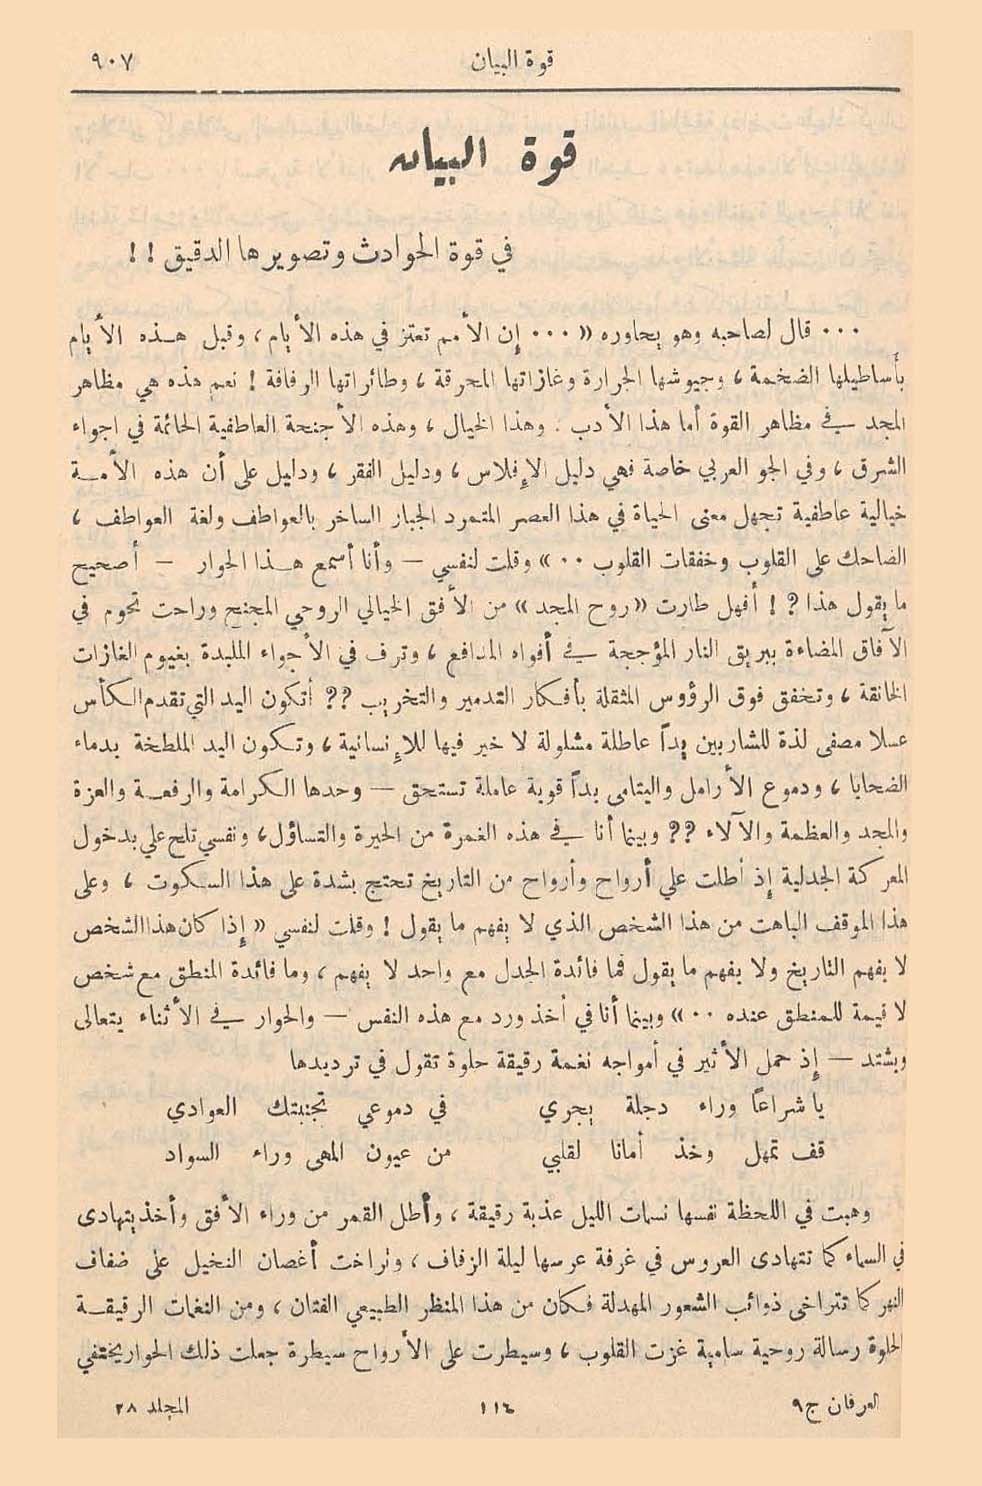 قوة البيان ٩٠٧
قوة البيان
في قوة الحوادث وتصويرها الدقيق ! !
٠٠٠ قال لصاحبه وهو يحاوره « ٠٠٠ إن الأمم تعتز في هذه الأيام ، وقبل هذه الأيام
بأساطيلها الضخمة ، وجيوشها الجرارة وغازاتها المحرقة ، وطائراتها الرفافة ! نعم هذه هي مظاهر
المجد في مظاهر القوة أما هذا الأدب . وهذا الخيال ، وهذه الأجنحة العاطفية الحائمة في اجواء
الشرق ، وفي الجو العربي خاصة فهي دليل الإفلاس ، ودليل الفقر ، ودليل على أن هذه الأمة
خيالية عاطفية تجهل معنى الحياة في هذا العصر المتمرد الجبار الساخر بالعواطف ولغة العواطف ،
الضاحك على القلوب وخفقات القلوب ٠٠ » وقلت لنفسي – وأنا أسمع هذا الحوار – أصحيح
ما يقول هذا ? ! أفهل طارت « روح المجد » من الأفق الخيالي الروحي المجنح وراحت تحوم في
الآفاق المضاءة ببريق النار المؤججة في أفواه المدافع ، وترف في الأجواء الملبدة بغيوم الغازات
الخانقة ، وتخفق فوق الرؤوس المثقلة بأفكار التدمير والتخريب ?? أتكون اليد التي تقدم الكأس
عسلا مصفى لذة للشاربين يداً عاطلة مشلولة لا خير فيها للإنسانية ، وتكون اليد الملطخة بدماء
الضحايا ، ودموع الأرامل واليتامى يداً قوية عاملة تستحق – وحدها الكرامة والرفعة والعزة
والمجد والعظمة والآلاء ?? وبينما أنا في هذه الغمرة من الحيرة والتساؤل ، ونفسي تلح علي بدخول
المعركة الجدلية إذ أطلت علي أرواح وأرواح من التاريخ تحتج بشدة على هذا السكوت ، وعلى
هذا الموقف الباهت من هذا الشخص الذي لا يفهم ما يقول ! وقلت لنفسي « إذا كان هذا الشخص
لا يفهم التاريخ ولا يفهم ما يقول فما فائدة الجدل مع واحد لا يفهم ، وما فائدة المنطق مع شخص
لا قيمة للمنطق عنده ٠٠ » وبينما أنا في أخذ ورد مع هذه النفس – والحوار في الأثناء يتعالى
ويشتد – إذ حمل الأثير في أمواجه نغمة رقيقة حلوة تقول في ترديدها
يا شراعاً وراء دجلة يجري في دموعي تجنبتك العوادي
قف تمهل وخذ أمانا لقلبي من عيون المهى وراء السواد
وهبت في اللحظة نفسها نسمات الليل عذبة رقيقة ، وأطل القمر من وراء الأفق وأخذ يتهادى
في السماء كما تتهادى العروس في غرفة عرسها ليلة الزفاف ، وتراخت أغصان النخيل على ضفاف
النهر كما تتراخى ذوائب الشعور المهدلة فكان من هذا المنظر الطبيعي الفتان ، ومن النغمات الرقيقة
الحلوة رسالة روحية سامية غزت القلوب ، وسيطرت على الأرواح سيطرة جعلت ذلك الحوار يختفي
العرفان ج٩ ١١٤ المجلد ٢٨